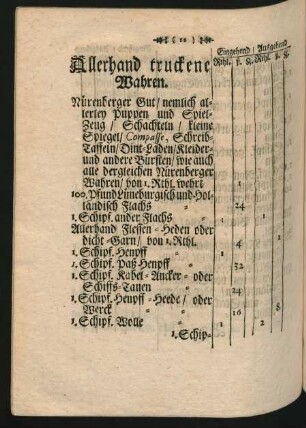 Eingehend / Ausgehend
Rthl. ß. q. Rthl. ß. q.
Allerhand truckene
Wahren.
Nürenberger Gut / nemlich al-
lerley Puppen und Spiel-
Zeug / Schachteln / kleine
Spiegel / Compasse, Schreib-
Taffeln / Dint-Laden / Kleider-
und andere Bürsten / wie auch
alle dergleichen Nürenberger
Wahren / von 1. Rthl. wehrt 1
100. Pfund Lüneburgisch und Hol-
ländisch Flachs 24
1. Schipf. ander Flachs 1
Allerhand Flessen-Heden oder
dicht-Garn / von 1. Rthl. 4 1
1. Schipf. Henpff
1. Schipf. Paß Henpff 32
1. Schipf. Kabel-Ancker- oder
Schiffs-Tauen 24
1. Schipf. Henpff-Heede / oder
Werck 16 8
1. Schipf. Wolle 1 2
1. Schip-